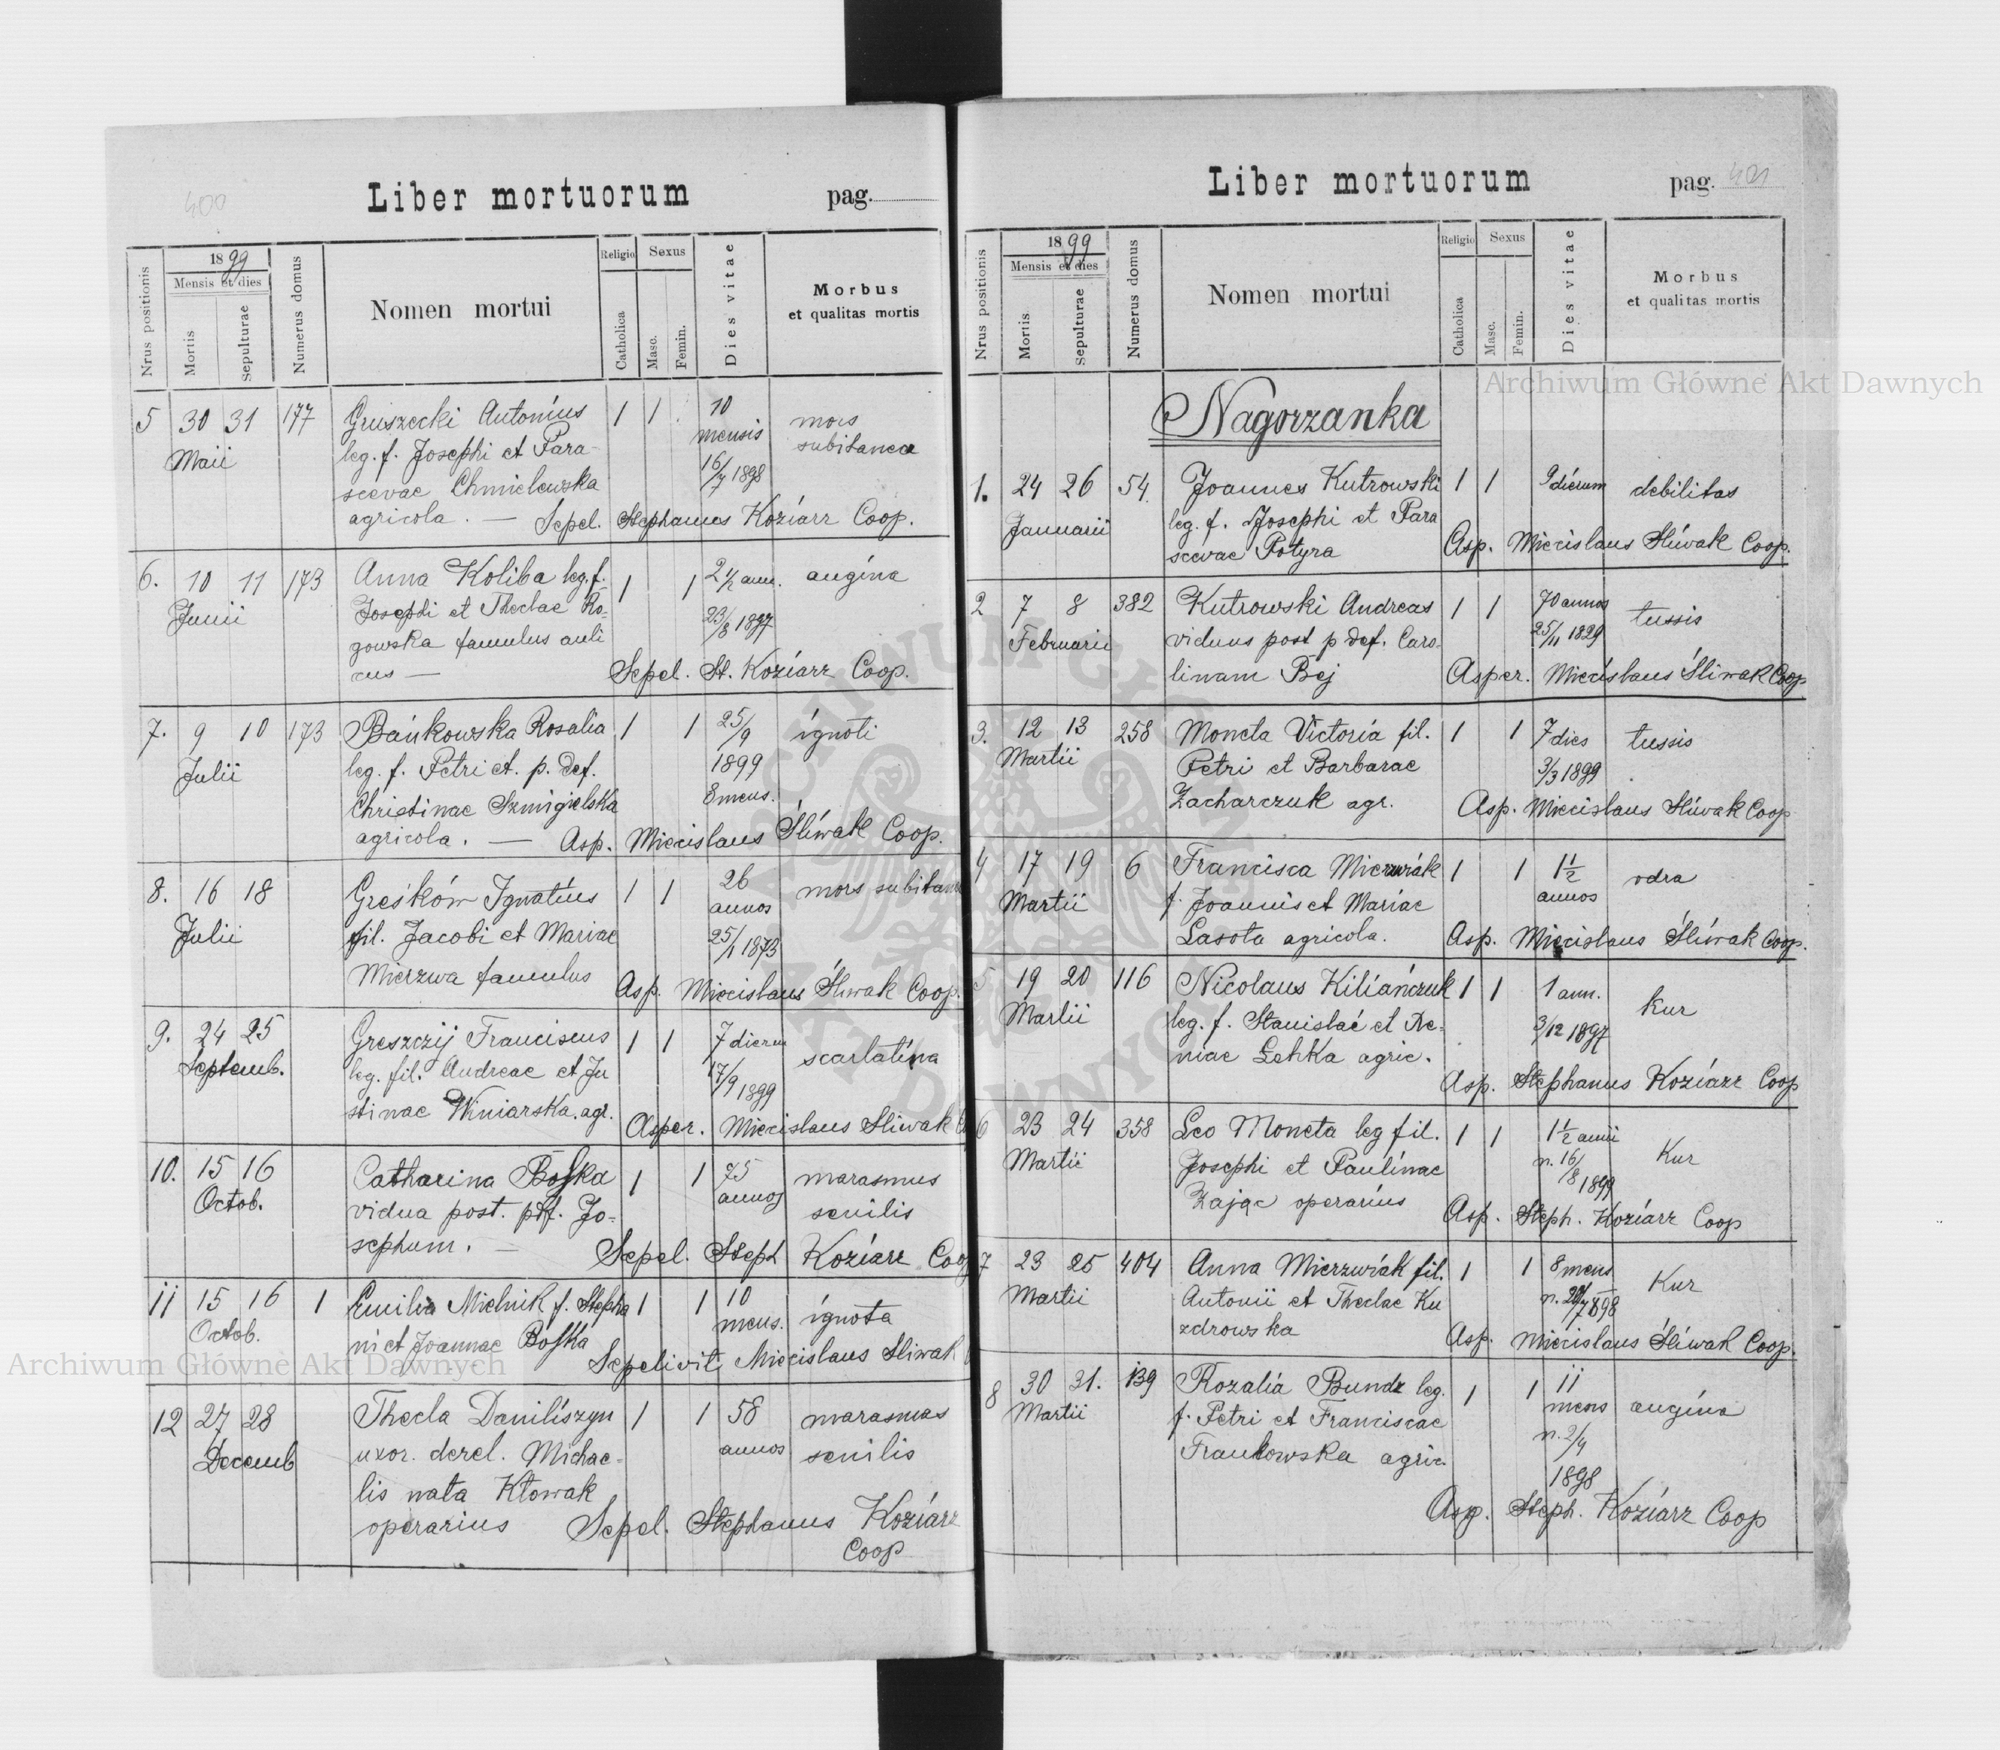 400
Liber mortuorum pag.
Nrus positionis
1899
Mensis et dies
Mortis
Sepulturae
Numerus domus
Nomen mortui
Religio
Catholica
Sexus
Masc.
Femin.
Dies vitae
Morbus
et qualitas mortis
5 30 31 177 Gruszecki Antonius 1 1 10 mors
Maii leg. f. Josephi et Para- mensis subitanea
scevae Chmielewska 16/7 1898
agricola. — Sepel. Stephanus Koziarz Coop.
6. 10 11 173 Anna Koliba leg. f. 1 1 2 1/2 ann. angina
Junii Josephi et Theclae Ro-
gowska famulus auli 23/8 1897
cus — Sepel. St. Koziarz Coop.
7. 9 10 173 Bańkowska Rosalia 1 1 25/9 ignoti
Julii leg. f. Petri et. p. def. 1899
Christinae Szmigielska 8 mens.
agricola. — Asp. Miecislaus Śliwak Coop.
8. 16 18 Greśków Ignatius 1 1 26 mors subitanea
Julii fil. Jacobi et Mariae annos
Mierzwa famulus 25/1 1873
Asp. Miecislaus Śliwak Coop.
9. 24 25 Greszczij Franciscus 1 1 7 dierum scarlatina
Septemb. leg. fil. Andreae et Ju 17/9 1899
stinae Winiarska. agr.
Asper. Miecislaus Sliwak
10. 15 16 Catharina Boſka 1 1 75 marasmus
Octob. vidua post. pdf. Jo- annos senilis
sephum. — Sepel. Steph Koziarz Coop
11 15 16 1 Emilia Mielnik f. Stepha 1 1 10 ignota
Octob. ni et Joannae Boſka mens.
Sepelivit Miecislaus Sliwak
12 27 28 Thecla Daniliszyn 1 1 58 marasmas
Decemb uxor. derel. Michae- annos senilis
lis nata Kłowak
operarius Sepel. Stephanus Koziarz
Coop
Liber mortuorum pag. 401
Nrus positionis
1899
Mensis et dies
Mortis
Sepulturae
Numerus domus
Nomen mortui
Religio
Catholica
Sexus
Masc.
Femin.
Dies vitae
Morbus
et qualitas mortis
Nagorzanka
1. 24 26 54. Joannes Kutrowski 1 1 9 dierum debilitas
Januarii leg. f. Josephi et Para
scevae Potyra Asp. Miecislaus Śliwak Coop.
2 7 8 382 Kutrowski Andreas 1 1 70 annos tussis
Februarii viduus post p def. Caro- 25/11 1829
linam Bej Asper. Miecislaus Śliwak Coop
3. 12 13 258 Moneta Victoria fil. 1 1 7 dies tussis
Martii Petri et Barbarae 3/3 1899
Zacharczuk agr. Asp. Miecislaus Śliwak Coop
4 17 19 6 Francisca Mierzwiak 1 1 1 1/2 odra
Martii f. Joannis et Mariae annos
Lasota agricola. Asp. Miecislaus Śliwak Coop.
5 19 20 116 Nicolaus Kiliańczuk 1 1 1 ann. kur
Martii leg. f. Stanislai et Xe- 3/12 1897
niae Lehka agric.
Asp. Stephanus Koziarz Coop
6 23 24 358 Leo Moneta leg fil. 1 1 1 1/2 anni Kur
Martii Josephi et Paulinae n. 16/8 1899
Zając operarius Asp. Steph. Koziarz Coop
7 23 25 404 Anna Mierzwiak fil. 1 1 8 mens Kur
Martii Antonii et Theclae Ku n. 1898
zdrowska Asp. Miecislaus Śliwak Coop.
8 30 31. 139 Rozalia Bundz leg. 1 1 11 angina
Martii f. Petri et Franciscae mens
Frankowska agric. n. 2/4
1898
Asp. Steph. Koziarz Coop
Archiwum Główne Akt Dawnych
Archiwum Główne Akt Dawnych
ARCHIWUM GŁÓWNE AKT DAWNYCH